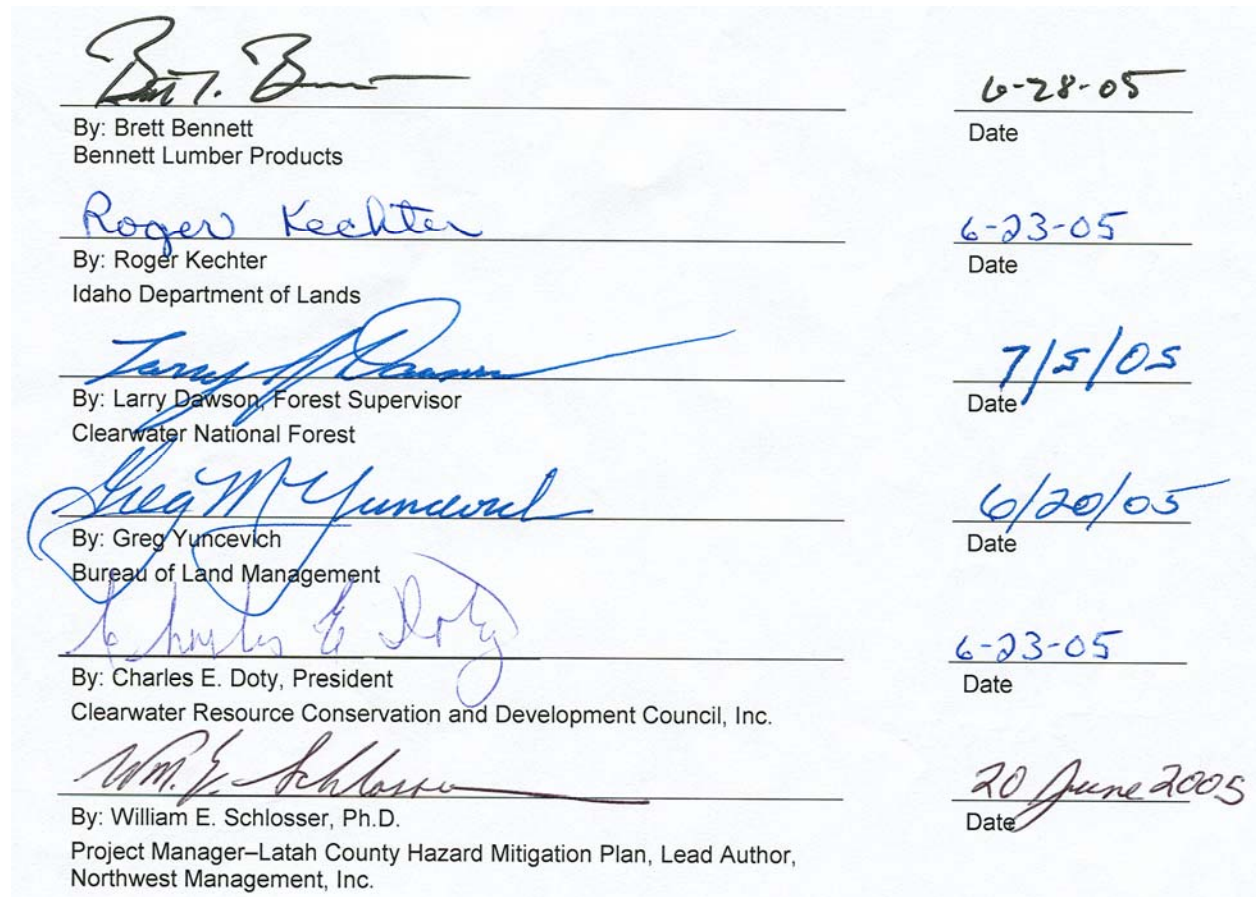 Brett T. B
6-28-05
By: Brett Bennett
Date
Bennett Lumber Products
Roger Kechter
6-23-05
By: Roger Kechter
Date
Idaho Department of Lands
Larry J Dawson
7/5/05
By: Larry Dawson, Forest Supervisor
Date
Clearwater National Forest
Greg M Yuncevich
6/20/05
By: Greg Yuncevich
Date
Bureau of Land Management
Charles E Doty
6-23-05
By: Charles E. Doty, President
Date
Clearwater Resource Conservation and Development Council, Inc.
Wm. E. Schlosser
20 June 2005
By: William E. Schlosser, Ph.D.
Date
Project Manager–Latah County Hazard Mitigation Plan, Lead Author,
Northwest Management, Inc.